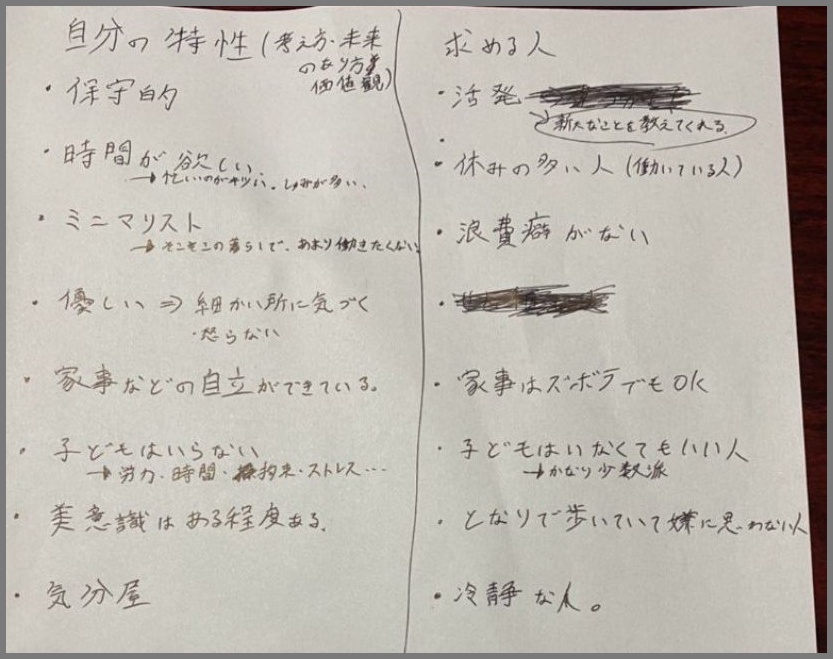 自分の特性(考え方・未来
のあり方
価値観)
・保守的
・時間が欲しい
→忙しいのがキツい。しゅみが多い、
・ミニマリスト
→そこそこの暮らしで、あまり働きたくない
・優しい⇒細かい所に気づく
・怒らない
・家事などの自立ができている。
・子どもはいらない
→労力・時間・拘束・ストレス…
・美意識はある程度ある。
・気分屋
求める人
・活発
→新たなことを教えてくれる。
・休みの多い人(働いている人)
・浪費癖がない
・家事はズボラでもOK
・子どもはいなくてもいい人
→かなり少数派
・となりで歩いていて嫌に思わない人
・冷静な人。